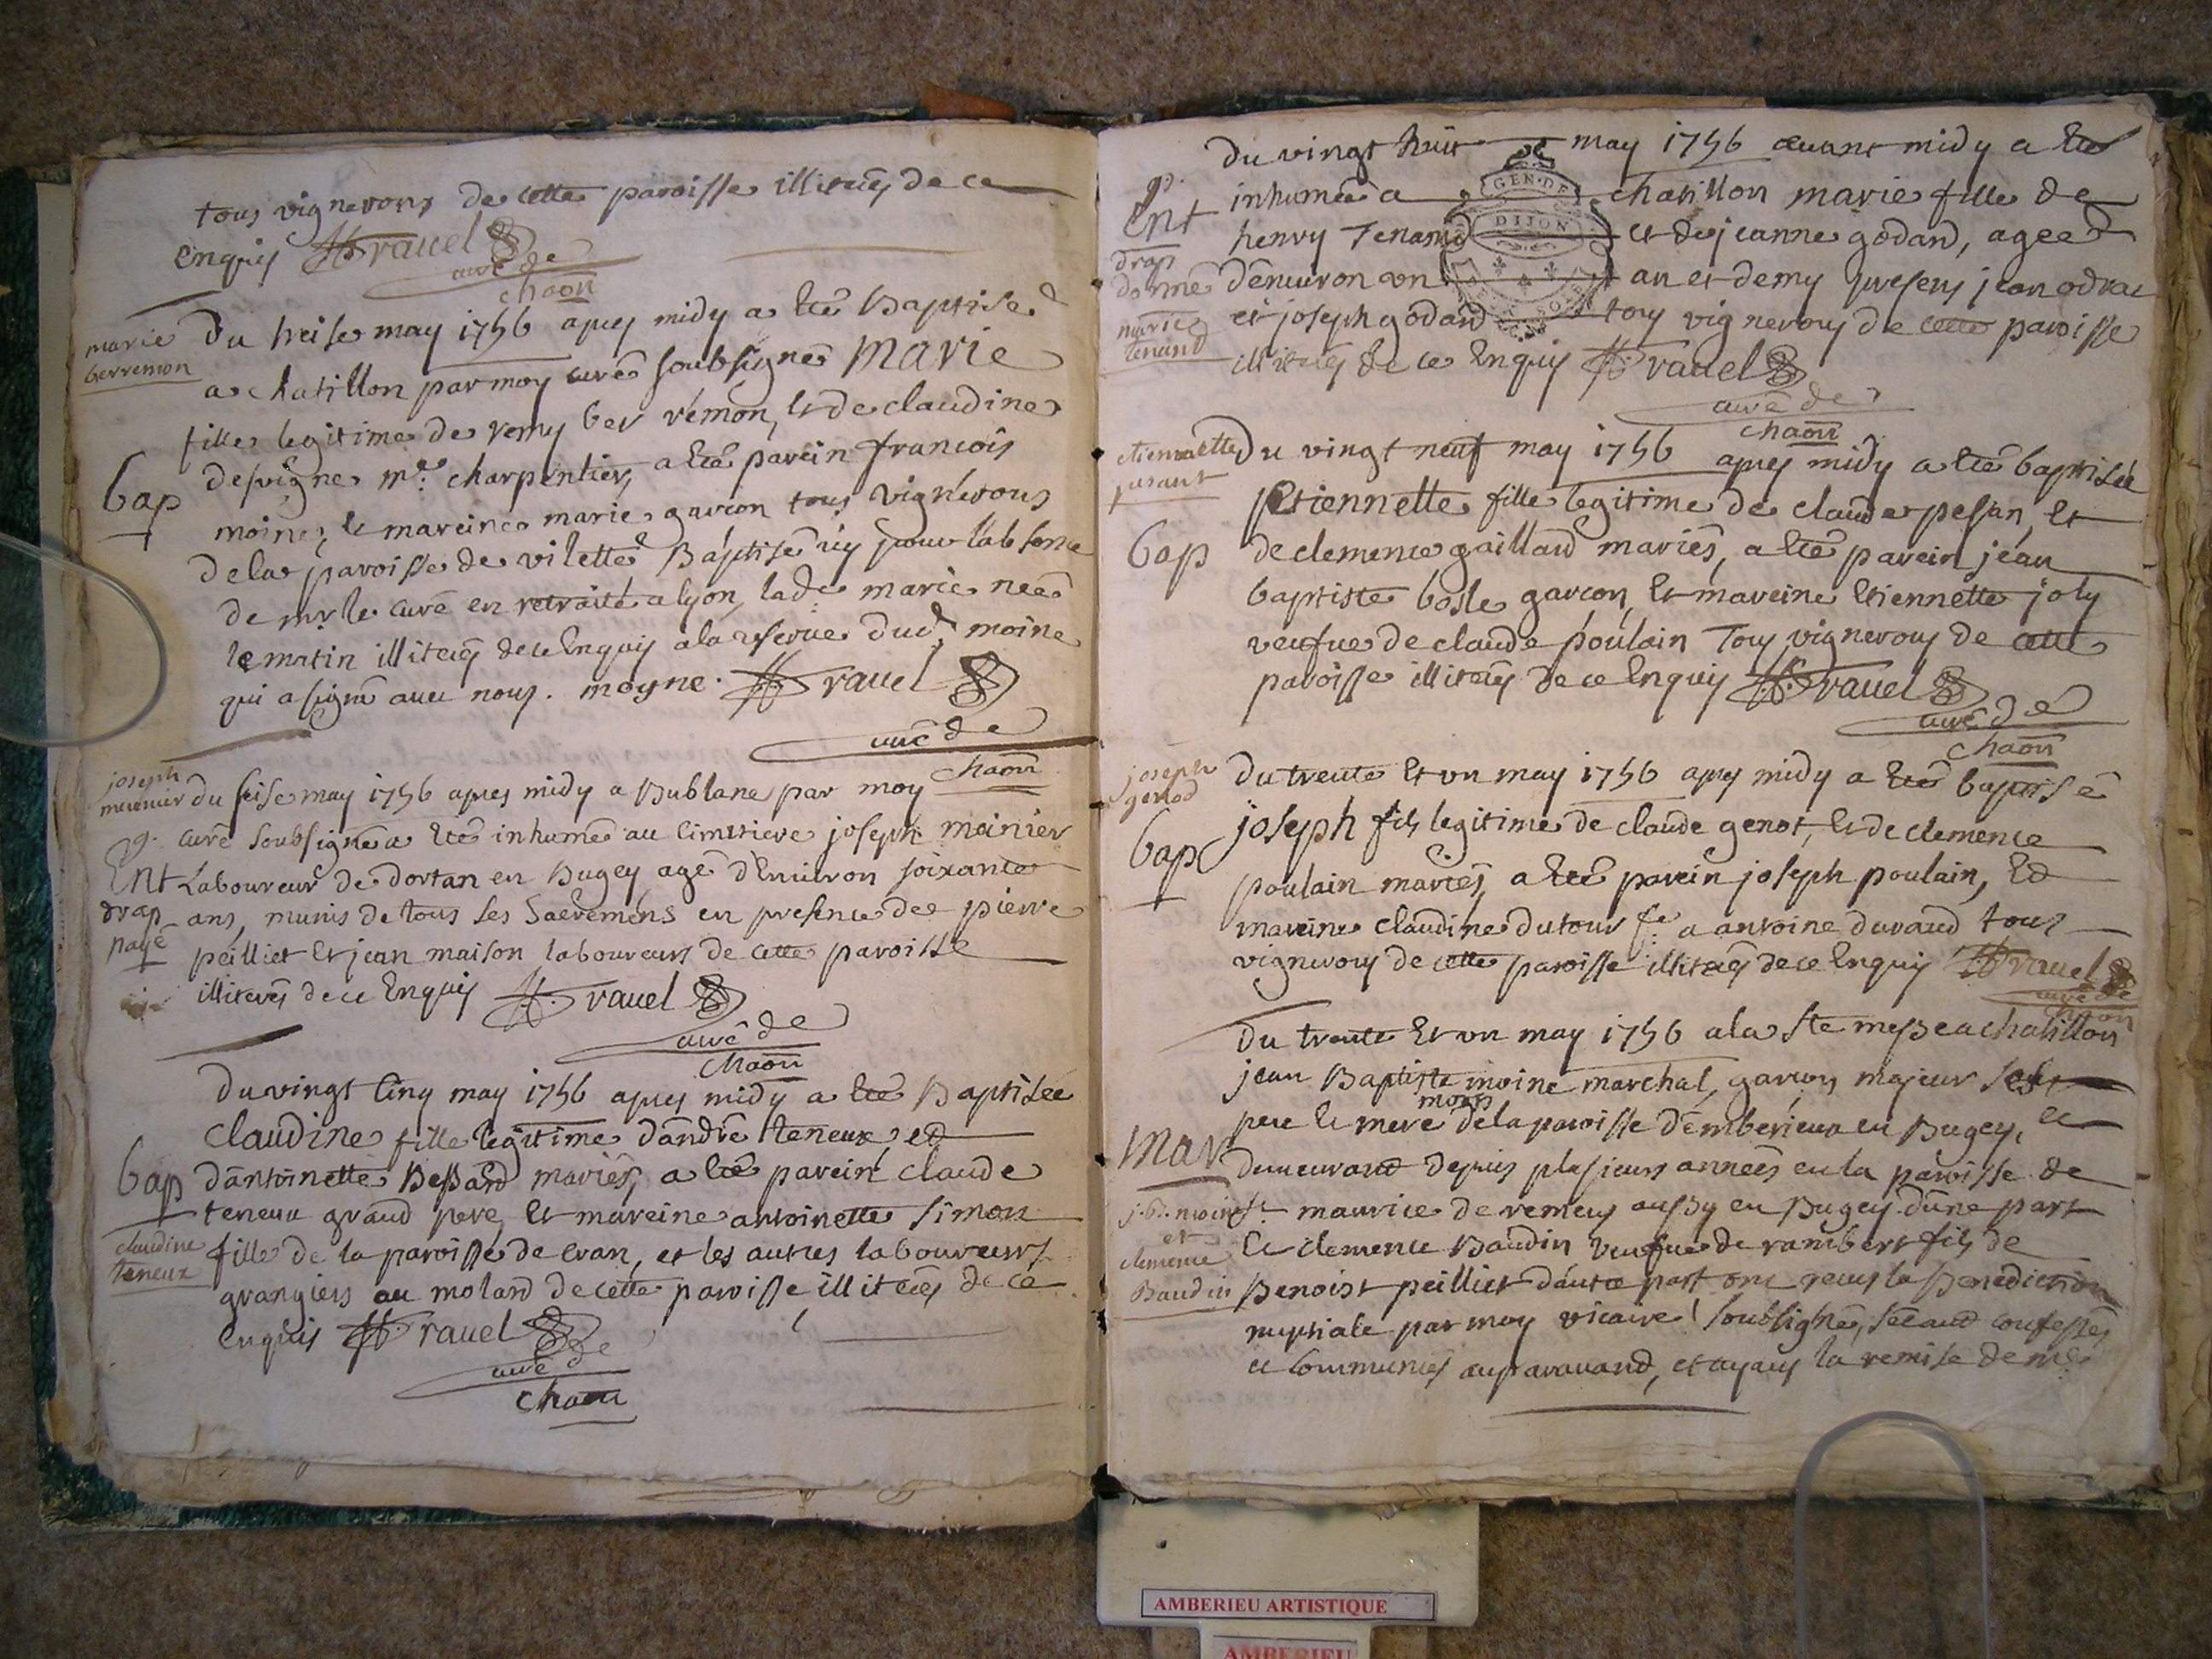 tous vignerons de cette paroisse illiterés de ce
Enquis ravel
curé de
chaon
marie
berremon
Du treise may 1756 apres midy a eté Baptisé
a chatillon par moy curé soubsigné marie
fille legitime de remy ber rémon, et de claudine
bap
desvigne mre charpentier, a eté parein francois
moine, et mareine marie garcon tous vignerons
de la paroisse de vilette Baptisé icy pour l'absence
de mr le curé en retraite a lyon, lade marie neé
le matin illiterés de ce Enquis a la reserve dud. moine
qui a signé avec nous. moyne. ravel
curé de
chaon
joseph
meunier
du seise may 1756 apres midy a Bublane par moy
g.
curé soubsigné a eté inhumé au cimetiere joseph moinier
Ent
Laboureur de dortan en Bugey agé d'Environ soixante
drap
payé
ans, munis de tous ses Sacremens en presence de pierre
peilliet et jean maison laboureurs de cette paroisse
illiterés de ce Enquis ravel
curé de
chaon
Du vingt cinq may 1756 apres midy a eté Baptisée
claudine fille legitime d'andré teneux, et
bap
d'antoinette Bessard mariés, a eté parein claude
teneux grand pere, et mareine antoinette simon
claudine
teneux
fille de la paroisse de cran, et les autres laboureurs
grangiers au molard de cette paroisse illiterés de ce
Enquis ravel
curé de
chaon
Du vingt huit may 1756 avant midy a eté
GEN. DE
DIJON
g.
Ent
drap
donné
marie
tenand
inhumeé a chatillon marie fille de
henry Tenand et de jeanne godard, ageé
d'environ un an et demy presens jean
et joseph godard tous vignerons de cette paroisse
illiterés de ce Enquis ravel
curé de
chaon
etiennette
Du vingt neuf may 1756 apres midy a eté baptisée
Etiennette fille legitime de claude pesan, et
bap
de clemence gaillard mariés, a eté parein jean
baptiste bosle garcon, et mareine Etiennette joly
veufve de claude poulain Tous vignerons de cette
paroisse illiterés de ce Enquis ravel
curé de
chaon
joseph
genod
Du trente Et un may 1756 apres midy a eté baptisé
joseph fils legitime de claude genot, et de clemence
bap
poulain mariés, a eté parein joseph poulain, Et
mareine claudine dutour fe a antoine durand tous
vignerons de cette paroisse illiterés de ce Enquis ravel
curé de
chaon
Du trente Et un may 1756 a la Ste messe a chatillon
jean Baptiste moine marchal, garcon majeur ses
morts
pere et mere de la paroisse d'emberieux en Bugey, et
mar
demeurand depuis plusieurs annees en la paroisse de
j. b. moine
et
clemence
Baudin
St maurice de remens aussy en Bugey d'une part
Et clemence Baudin veufve de rambert fils de
Benoist peilliet d'autre part ont receus la Benediction
nuptiale par moy vicaire soubsigné, s'etand confessés
et communiés auparavand, et apres la remise de mr
AMBERIEU ARTISTIQUE
AMBERIEU